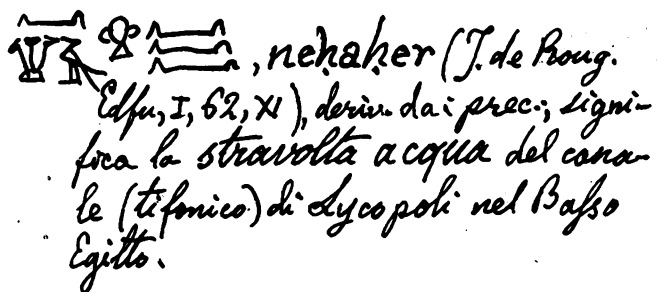 , neḥaḥer (J. de Roug.
Edfu, I, 62, XI), deriv. dai prec.; signi-
fica la stravolta acqua del cana-
le (tifonico) di Lycopoli nel Basso
Egitto.